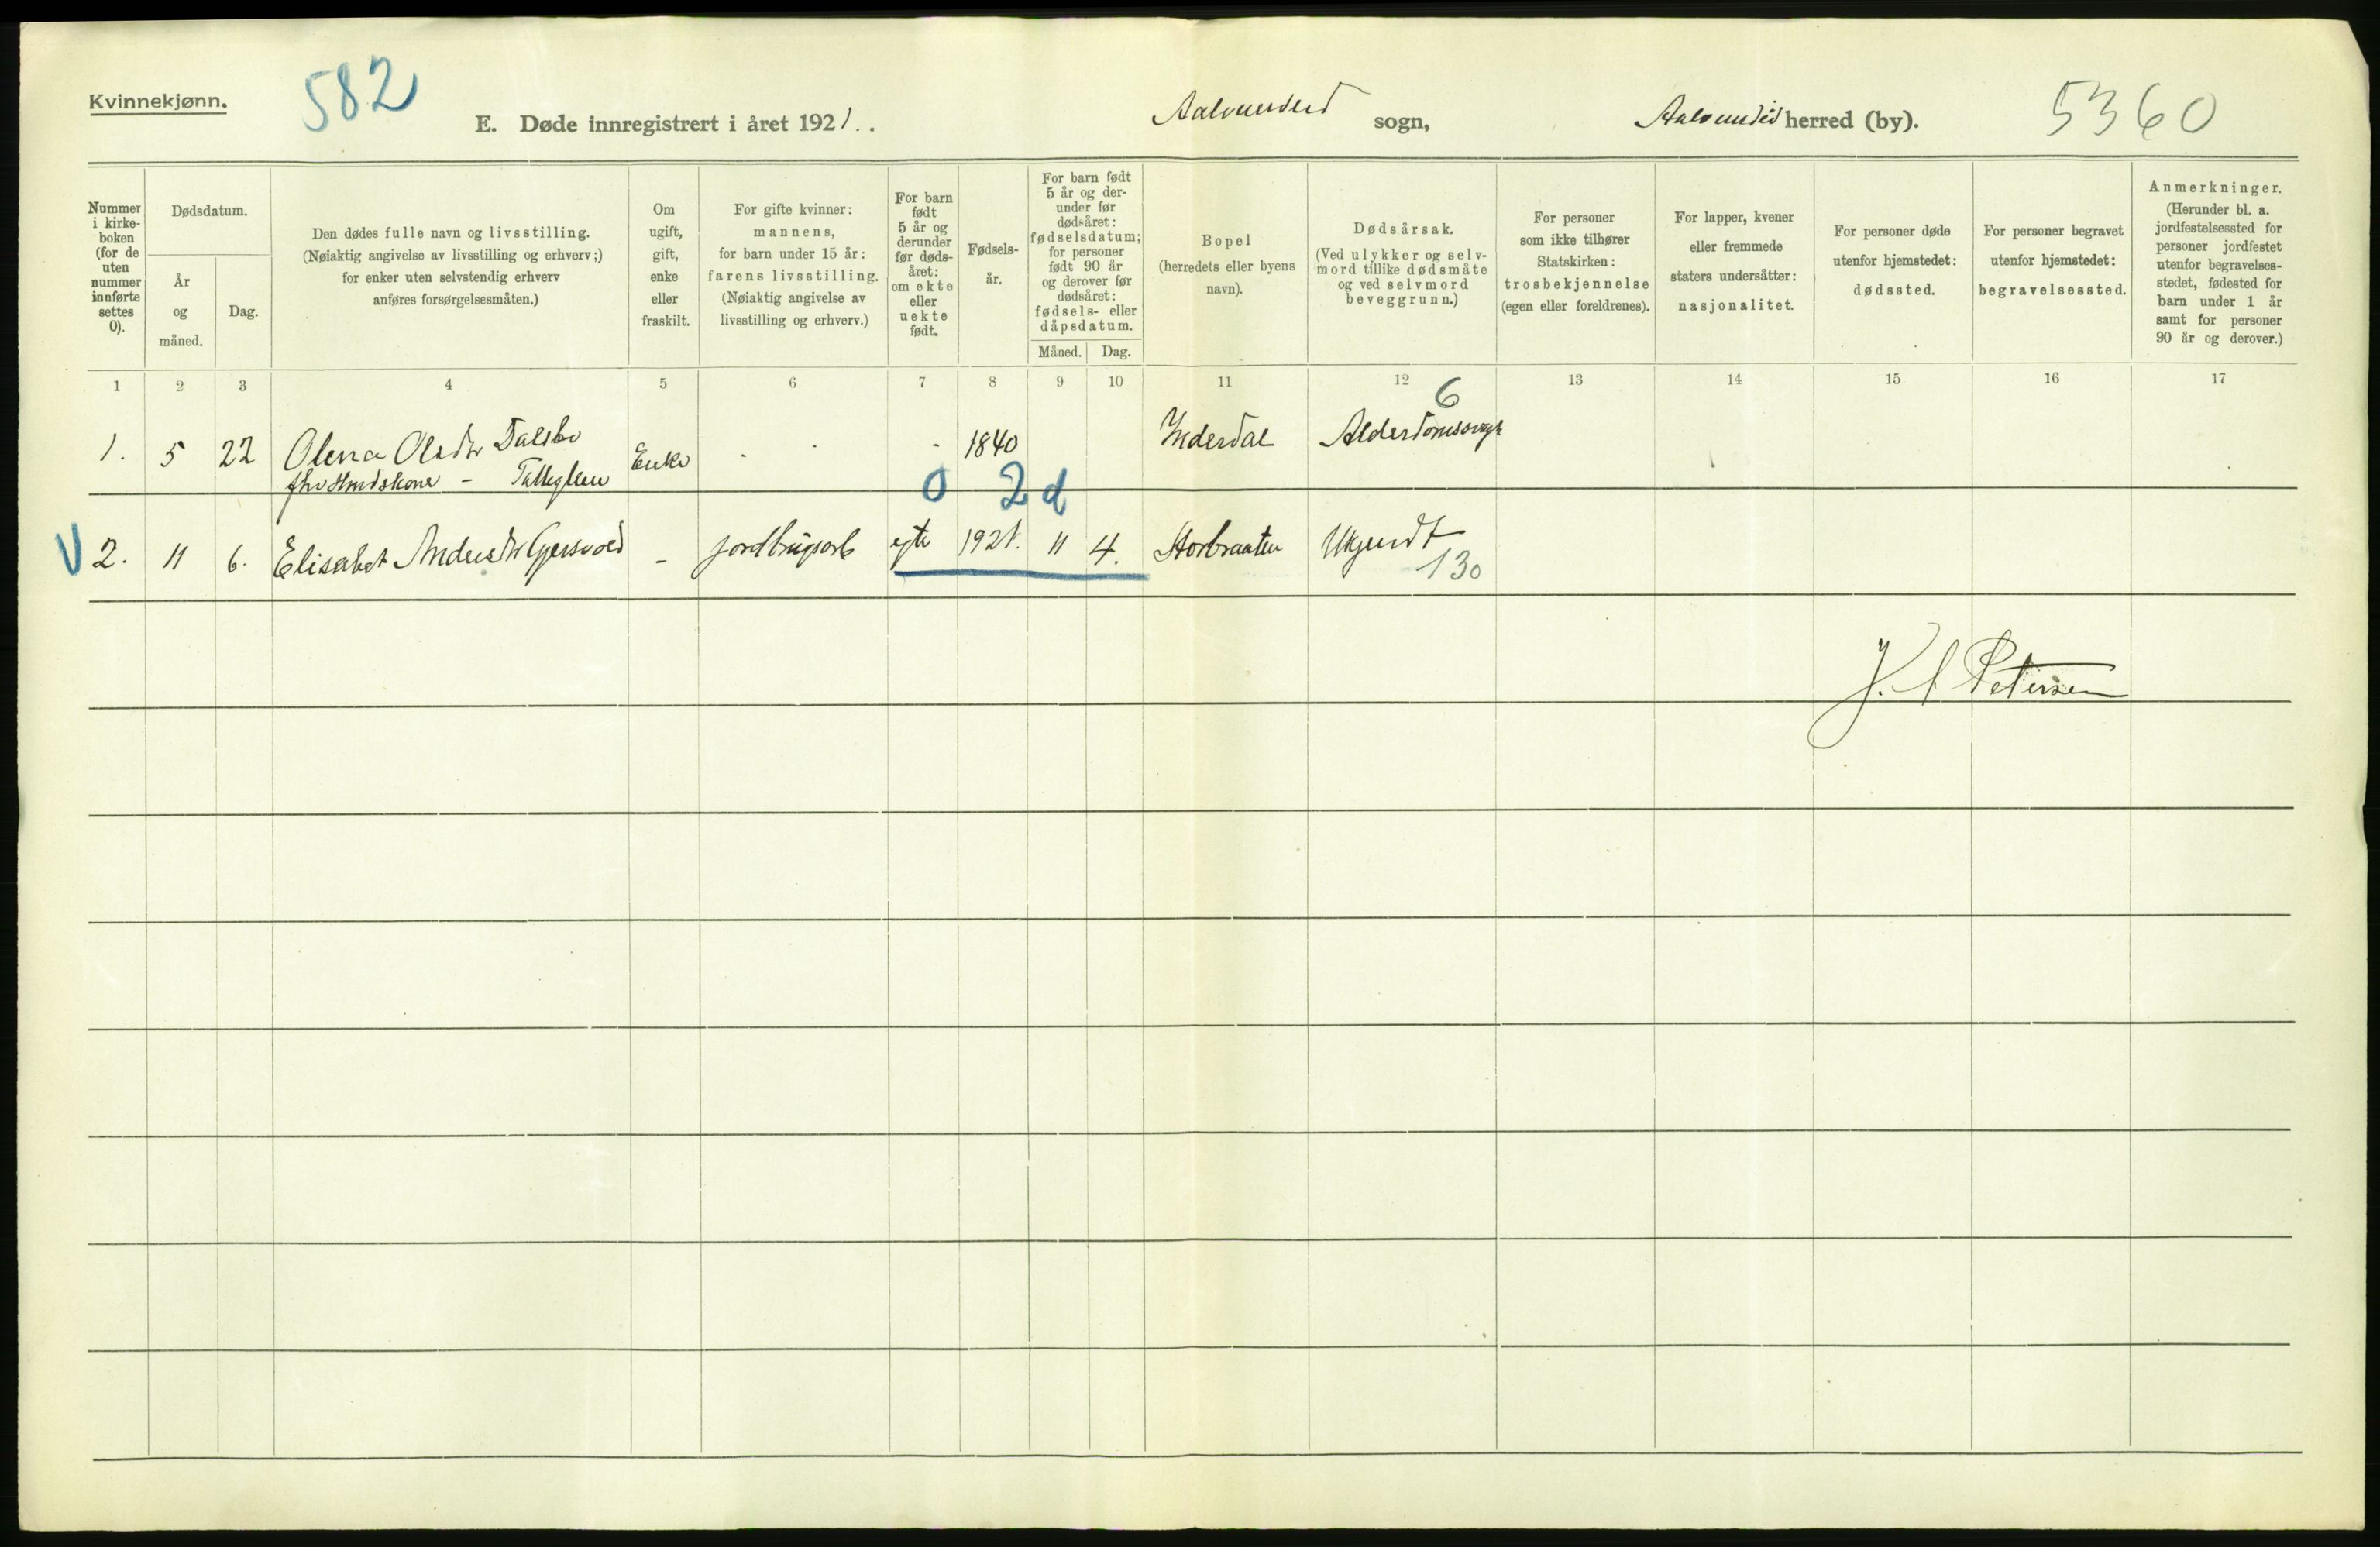 Kvinnekjønn.
582
E. Døde innregistrert i året 1921. .
Aalvundeid sogn,
Aalvundeid herred (by).
5360
Nummer i kirke-boken (for de uten nummer innførte settes 0).
Dødsdatum.
År og måned.
Dag.
Den dødes fulle navn og livsstilling.
(Nøiaktig angivelse av livsstilling og erhverv;)
for enker uten selvstendig erhverv
anføres forsørgelsesmåten.)
Om ugift, gift, enke eller fraskilt.
For gifte kvinner:
mannens,
for barn under 15 år:
farens livsstilling.
(Nøiaktig angivelse av
livsstilling og erhverv.)
For barn født 5 år og derunder før døds-året: om ekte eller uekte født.
Fødsels-år.
For barn født 5 år og der-under før dødsåret: fødselsdatum; for personer født 90 år og derover før dødsåret: fødsels- eller dåpsdatum.
Måned. Dag.
Bopel
(herredets eller byens
navn).
Dødsårsak.
(Ved ulykker og selv-
mord tillike dødsmåte
og ved selvmord
beveggrunn.)
For personer
som ikke tilhører
Statskirken:
trosbekjennelse
(egen eller foreldrenes).
For lapper, kvener
eller fremmede
staters undersåtter:
nasjonalitet.
For personer døde
utenfor hjemstedet:
dødssted.
For personer begravet
utenfor hjemstedet:
begravelsessted.
Anmerkninger.
(Herunder bl. a.
jordfestelsessted for
personer jordfestet
utenfor begravelses-
stedet, fødested for
barn under 1 år
samt for personer
90 år og derover.)
1 2 3 4 5 6 7 8 9 10 11 12 13 14 15 16 17
6
1. 5 22 Olena Olsdtr Dalsbø Enke - - - 1840 Inderdal Alderdomssvagh
0 2 d
V 2. 11 6. Elisabet Andersdtr Gjersvold - jordbrugsarb egte 1921. 11 4. Storbraaten Ukjendt
130
J. Petersen